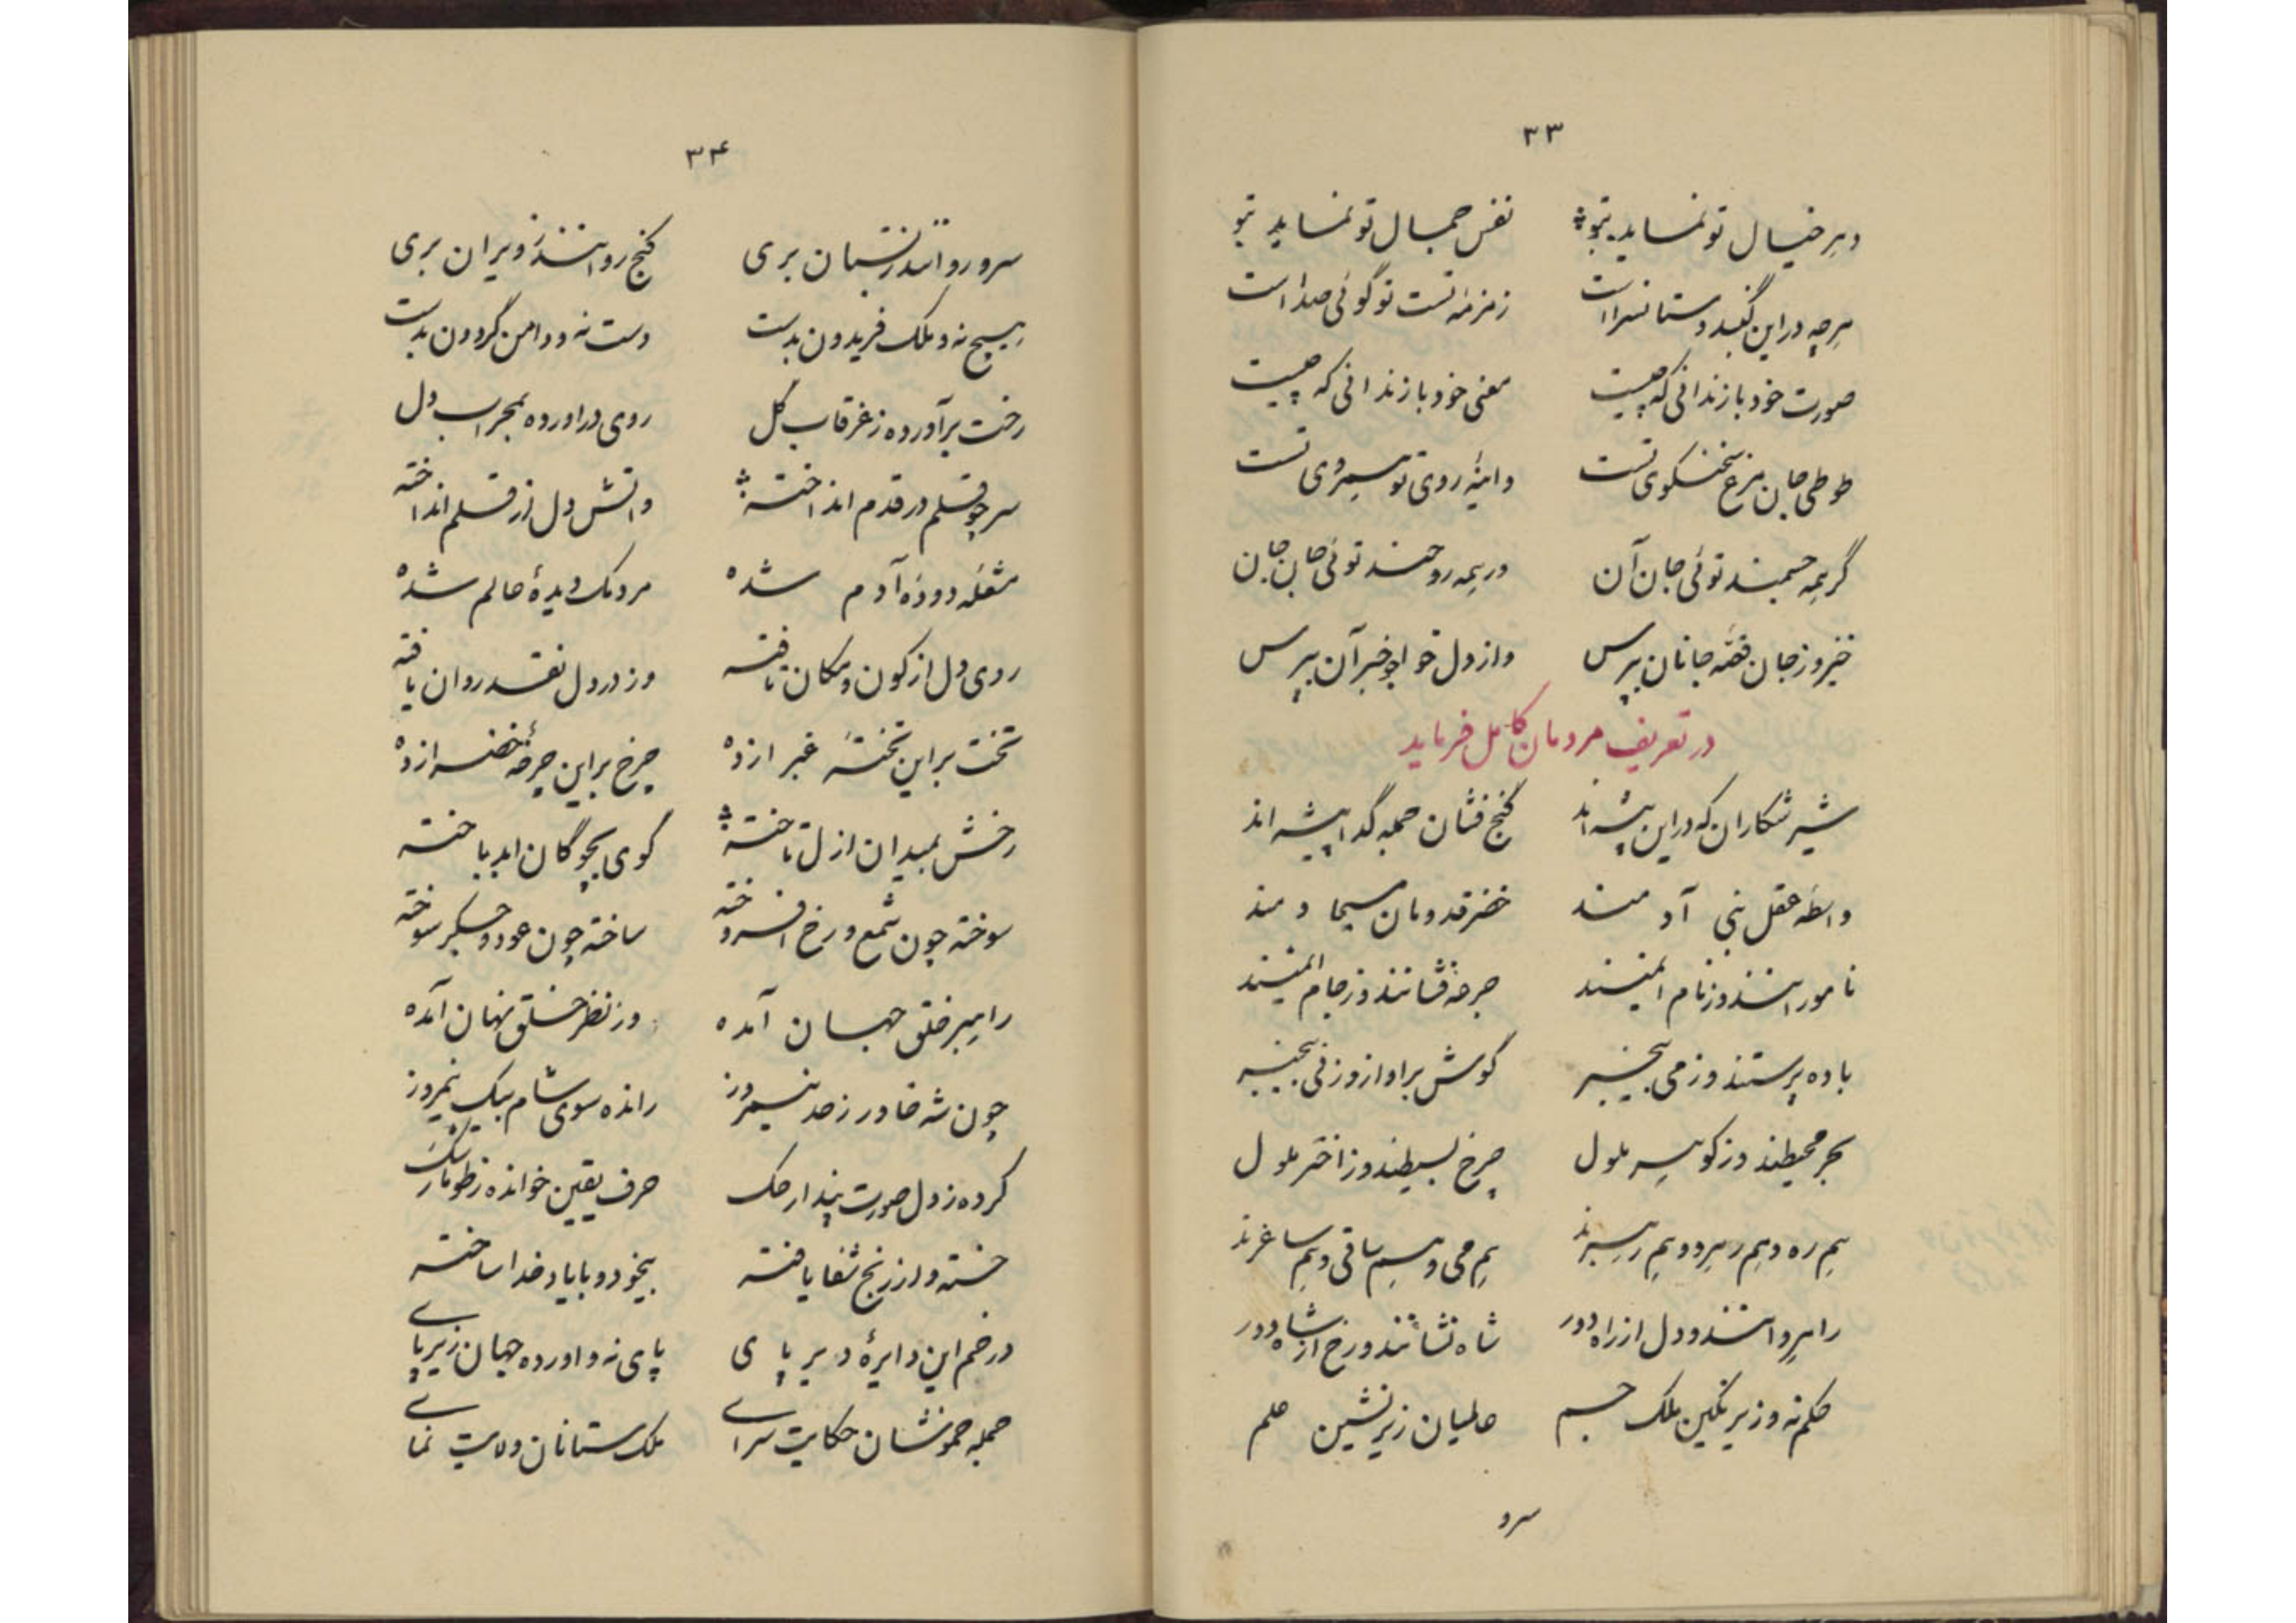 ۳۳
دهر خیال تو نماید بتو نقش جمال تو نماید بتو
هرچه در این گنبد دستانسراست زمزمه تست تو گوئی صداست
صورت خود باز ندانی که چیست معنی خود باز ندانی که چیست
طوطی جان مرغ سخنگوی تست واینه روی تو هم روی تست
گر همه جسمند توئی جان آن ور همه روحند توئی جان جان
خیز و ز جان قصه جانان بپرس واز دل خواجو خبر آن بپرس
در تعریف مردمان کامل فرماید
شیر شکاران که در این بیشه اند گنج فشان جمله گدا پیشه اند
واسطه عقل بنی آدمند خضر قدومان مسیحا دمند
نامورانند و ز نام ایمنند جرعه فشانند و ز جام ایمنند
باده پرستند و ز می بیخبر گوش بر اواز و ز نی بیخبر
بحر محیطند و ز گوهر ملول چرخ بسیطند و ز اختر ملول
هم ره و هم رهرو و هم رهبرند هم می و هم ساقی و هم ساغرند
راهروانند و دل از راه دور شاه نشانند و رخ از شاه دور
حکم نه و زیر نگین ملک جم عالمیان زیر نشین علم
سرو
۳۴
سرو روانند ز بستان بری گنج روانند ز ویران بری
هیچ نه و ملک فریدون بدست دست نه و دامن گردون بدست
رخت برآورده ز غرقاب گل روی دراورده بمحراب دل
سر چو قلم در قدم انداخته واتش دل در قلم انداخته
مشعله دوده آدم شده مردمک دیدهٔ عالم شده
روی دل از کون و مکان تافته وز در دل نقد روان یافته
تخت براین تختهٔ غبرا زده چرخ براین چرخهٔ خضرا زده
رخش بمیدان ازل تاخته گوی بچوگان ابد باخته
سوخته چون شمع و رخ افروخته ساخته چون عود و جگر سوخته
راهبر خلق جهان آمده وز نظر خلق نهان آمده
چون شه خاور ز حد نیمروز رانده سوی شام بیک نیمروز
کرده ز دل صورت پندار حک حرف یقین خوانده ز طومار شک
خسته و از رنج شفا یافته بیخود و با یاد خدا ساخته
در خم این دایرهٔ دیر پای پای نه و اورده جهان زیر پای
جمله خموشان حکایت سرای ملک ستانان ولایت نمای